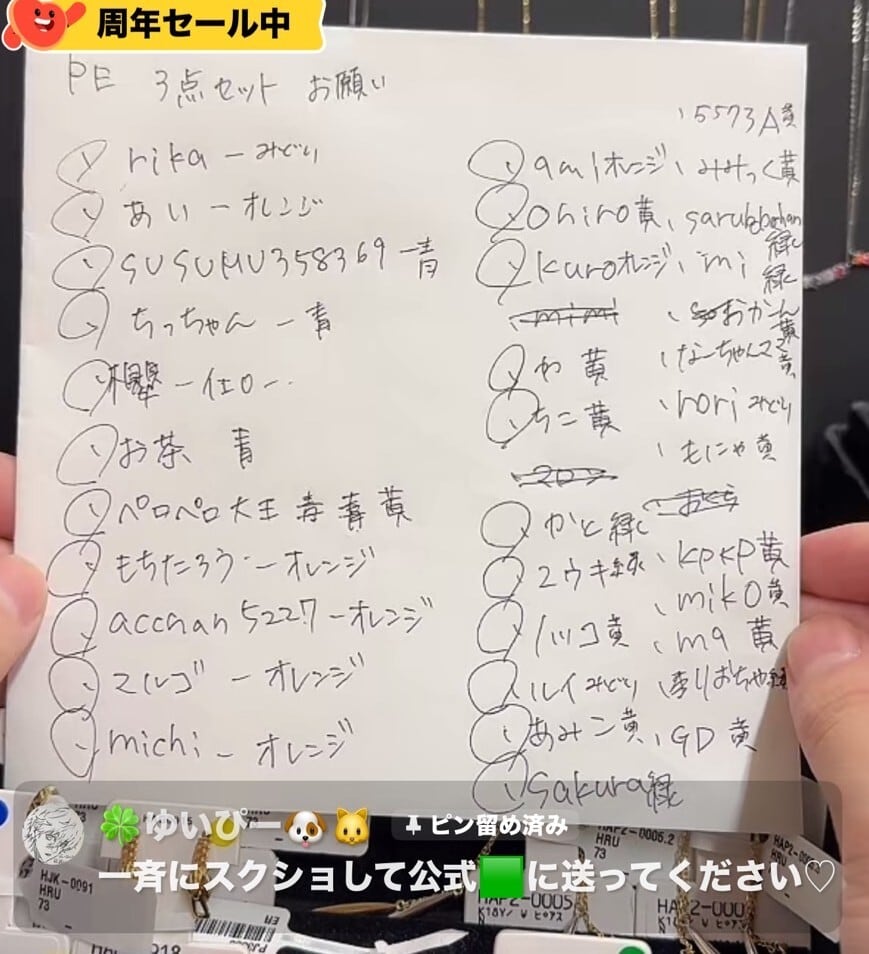 周年セール中
PE 3点セット お願い
、5573A黄
rika ー みどり
あい ー オレンジ
SUSUMU358369 ー青
ちっちゃん ー 青
櫻 ー イエロー
お茶 青
ペロペロ大王 青 黄
もちたろう ー オレンジ
acchan5227 ーオレンジ
マルゴ ー オレンジ
michi ー オレンジ
amiオレンジ、みみっく黄
ohiro黄、
緑
kuroオレンジ、mi
緑
mimi 、おかーん
黄
か 黄 、なーちゃんママ
黄
ちこ黄 、noriみどり
、もにゃ黄
かと緑
ユウキ緑、KPKP黄
、miko黄
ノッコ黄、ma 黄
ルイみどり
あみこ黄、GD 黄
sakura緑
🍀ゆいぴー🐶🐱 ピン留め済み
一斉にスクショして公式🟩に送ってください♡
HJK-0091
HRU
73
HAP2-0006.2
HRU
73
HAP2-0005
K18Y/W ピアス